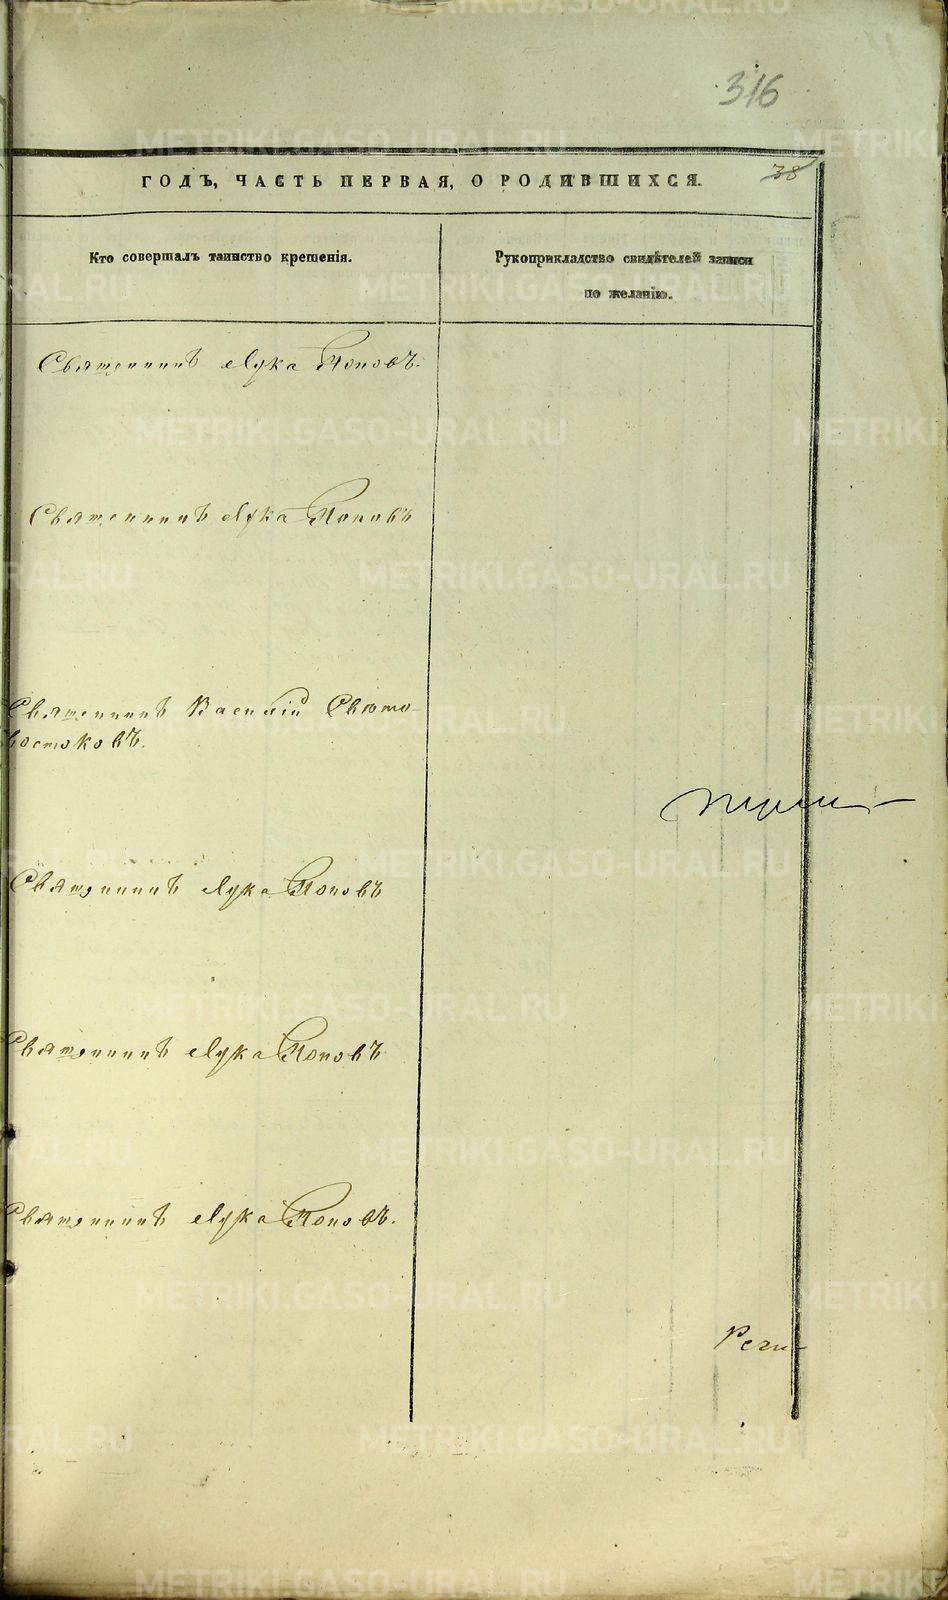 316
38
ГОДЪ, ЧАСТЬ ПЕРВАЯ, О РОДИВШИХСЯ.
Кто совершалъ таинство крещенія.
Рукоприкладство свидѣтелей записи
по желанію.
Священникъ Лука Поповъ.
Священникъ Лука Поповъ
Священникъ Василій Свѣто-
востоковъ.
Священникъ Лука Поповъ
Священникъ Лука Поповъ
Священникъ Лука Поповъ.
METRIKI.GASO-URAL.RU